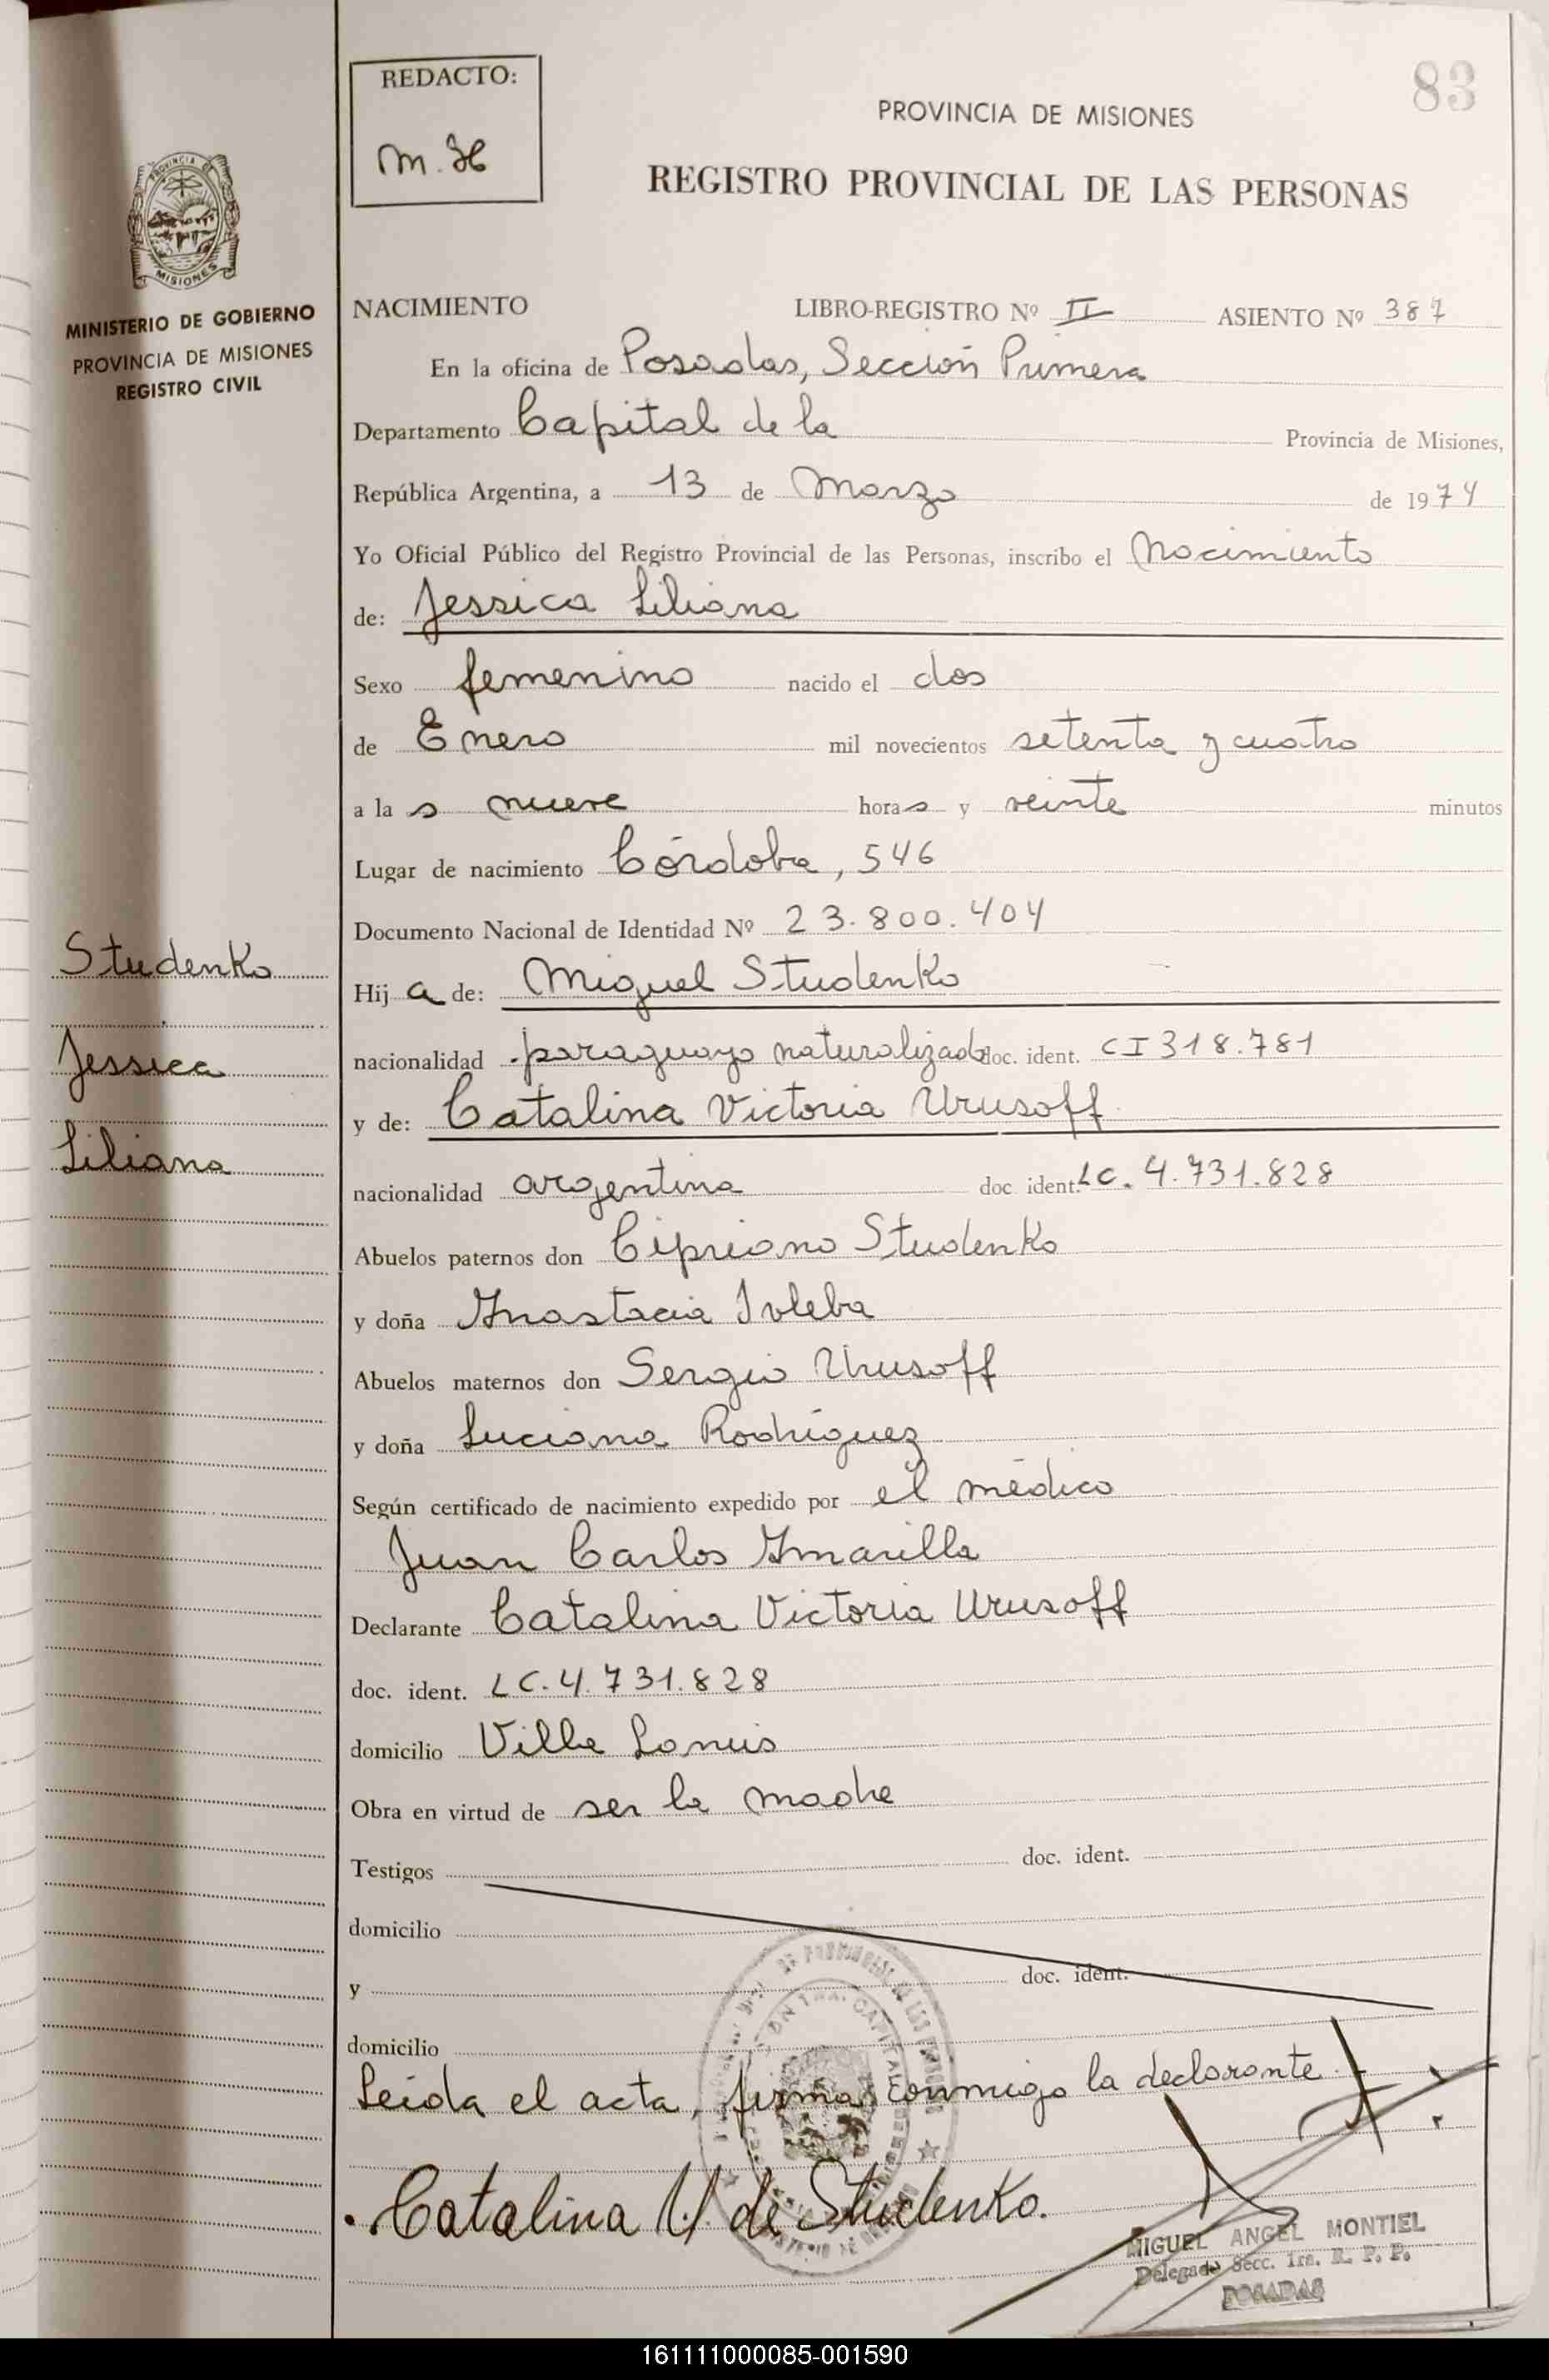 83
REDACTO:
M. H
PROVINCIA DE MISIONES
REGISTRO PROVINCIAL DE LAS PERSONAS
PROVINCIA DE
MISIONES
MINISTERIO DE GOBIERNO
PROVINCIA DE MISIONES
REGISTRO CIVIL
NACIMIENTO LIBRO-REGISTRO Nº II ASIENTO Nº 387
En la oficina de Posadas, Sección Primera
Departamento Capital de la Provincia de Misiones,
República Argentina, a 13 de Marzo de 1974
Yo Oficial Público del Registro Provincial de las Personas, inscribo el Nacimiento
de: Jessica Liliana
Sexo femenino nacido el dos
de Enero mil novecientos setenta y cuatro
a la s nueve hora s y veinte minutos
Lugar de nacimiento Córdoba, 546
Documento Nacional de Identidad Nº 23.800.404
Studenko
Jessica
Liliana
Hij a de: Miguel Studenko
nacionalidad paraguayo naturalizado doc. ident. CI 318.781
y de: Catalina Victoria Urusoff
nacionalidad argentina doc ident. LC. 4.731.828
Abuelos paternos don Cipriano Studenko
y doña Anastacia Ivleba
Abuelos maternos don Sergio Urusoff
y doña Luciana Rodríguez
Según certificado de nacimiento expedido por el médico
Juan Carlos Amarilla
Declarante Catalina Victoria Urusoff
doc. ident. LC. 4.731.828
domicilio Villa Lanús
Obra en virtud de ser la madre
Testigos doc. ident.
domicilio
y doc. ident.
domicilio
Leída el acta, firma conmigo la declarante.
Catalina U. de Studenko.
MIGUEL ANGEL MONTIEL
Delegado Secc. 1ra. R. P. P.
POSADAS
161111000085-001590